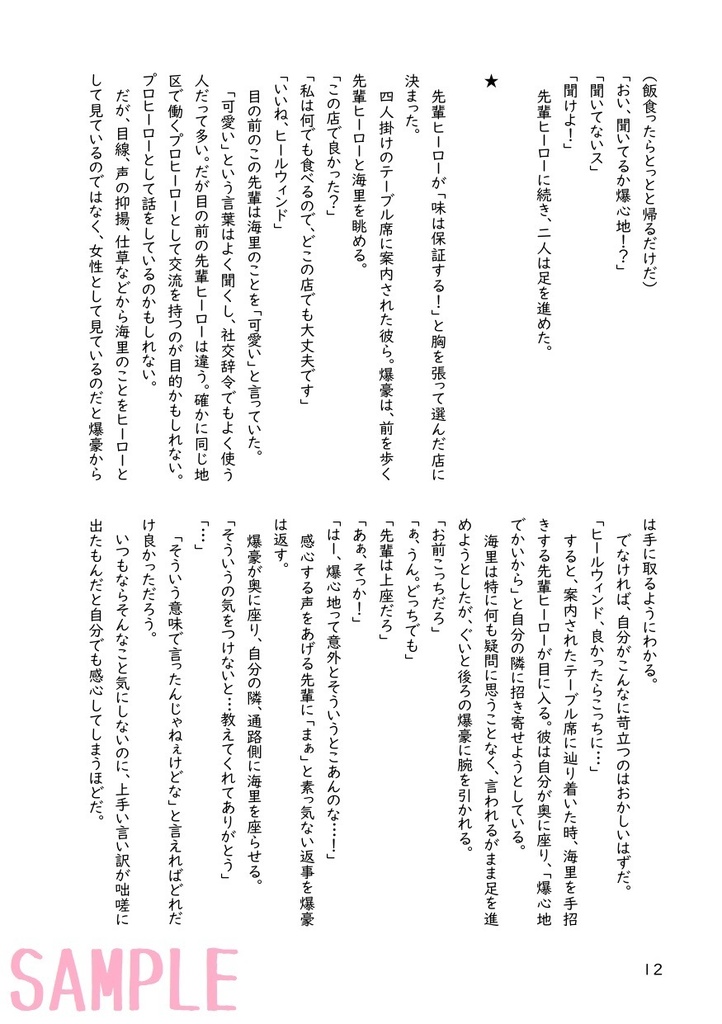 (飯食ったらとっとと帰るだけだ)
「おい、聞いてるか爆心地!?」
「聞いてないス」
「聞けよ!」
　先輩ヒーローに続き、二人は足を進めた。
★
　先輩ヒーローが「味は保証する!」と胸を張って選んだ店に
決まった。
　四人掛けのテーブル席に案内された彼ら。爆豪は、前を歩く
先輩ヒーローと海里を眺める。
「この店で良かった?」
「私は何でも食べるので、どこの店でも大丈夫です」
「いいね、ヒールウィンド」
　目の前のこの先輩は海里のことを「可愛い」と言っていた。
　「可愛い」という言葉はよく聞くし、社交辞令でもよく使う
人だって多い。だが目の前の先輩ヒーローは違う。確かに同じ地
区で働くプロヒーローとして交流を持つのが目的かもしれない。
プロヒーローとして話をしているのかもしれない。
　だが、目線、声の抑揚、仕草などから海里のことをヒーローと
して見ているのではなく、女性として見ているのだと爆豪から
は手に取るようにわかる。
　でなければ、自分がこんなに苛立つのはおかしいはずだ。
「ヒールウィンド、良かったらこっちに…」
　すると、案内されたテーブル席に辿り着いた時、海里を手招
きする先輩ヒーローが目に入る。彼は自分が奥に座り、「爆心地
でかいから」と自分の隣に招き寄せようとしている。
　海里は特に何も疑問に思うことなく、言われるがまま足を進
めようとしたが、ぐいと後ろの爆豪に腕を引かれる。
「お前こっちだろ」
「ぁ、うん。どっちでも」
「先輩は上座だろ」
「あぁ、そっか!」
「はー、爆心地って意外とそういうとこあんのな…!」
　感心する声をあげる先輩に「まぁ」と素っ気ない返事を爆豪
は返す。
　爆豪が奥に座り、自分の隣、通路側に海里を座らせる。
「そういうの気をつけないと…教えてくれてありがとう」
「…」
　「そういう意味で言ったんじゃねぇけどな」と言えればどれだ
け良かっただろう。
　いつもならそんなこと気にしないのに、上手い言い訳が咄嗟に
出たもんだと自分でも感心してしまうほどだ。
12
SAMPLE